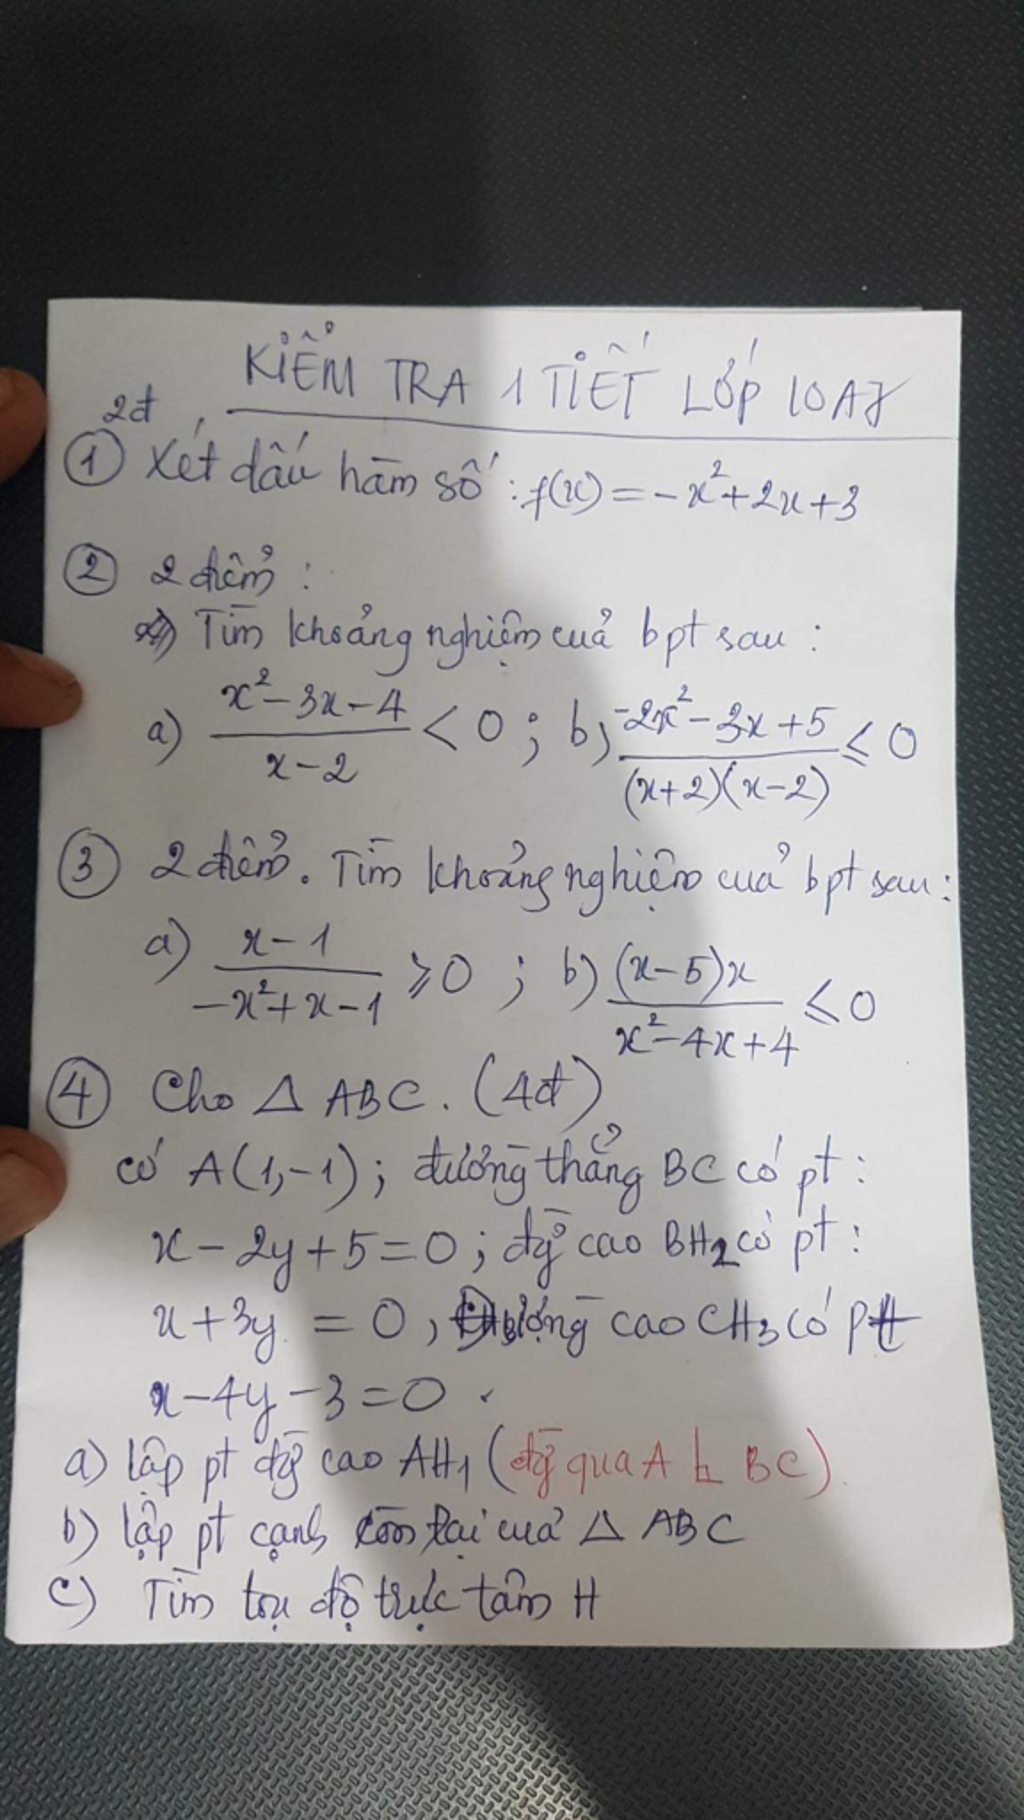 KIỂM TRA 1 TIẾT LỚP 10A7
2đ
① Xét dấu hàm số : f(x) = -x² + 2x + 3
② 2 điểm :
Tìm khoảng nghiệm của bpt sau :
a) (x² - 3x - 4)/(x - 2) < 0 ; b) (-2x² - 3x + 5)/((x+2)(x-2)) ≤ 0
③ 2 điểm. Tìm khoảng nghiệm của bpt sau :
a) (x - 1)/(-x² + x - 1) ≥ 0 ; b) ((x - 5)x)/(x² - 4x + 4) ≤ 0
④ Cho △ ABC. (4đ)
có A(1,-1) ; đường thẳng BC có pt :
x - 2y + 5 = 0 ; đg̀ cao BH₂ có pt :
x + 3y = 0 , đường cao CH₃ có pt
x - 4y - 3 = 0 .
a) lập pt đg̀ cao AH₁ (đg̀ qua A ⊥ BC)
b) lập pt cạnh còn lại của △ ABC
c) Tìm toạ độ trực tâm H